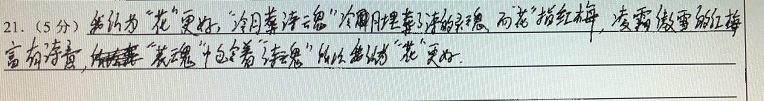 21.（5分）我认为“花”更好，“冷月葬诗魂”冷月埋葬了诗的灵魂，而“花”指红梅，凌霜傲雪的红梅
富有诗意，“花魂”中包含着“诗魂”所以我认为“花”更好.